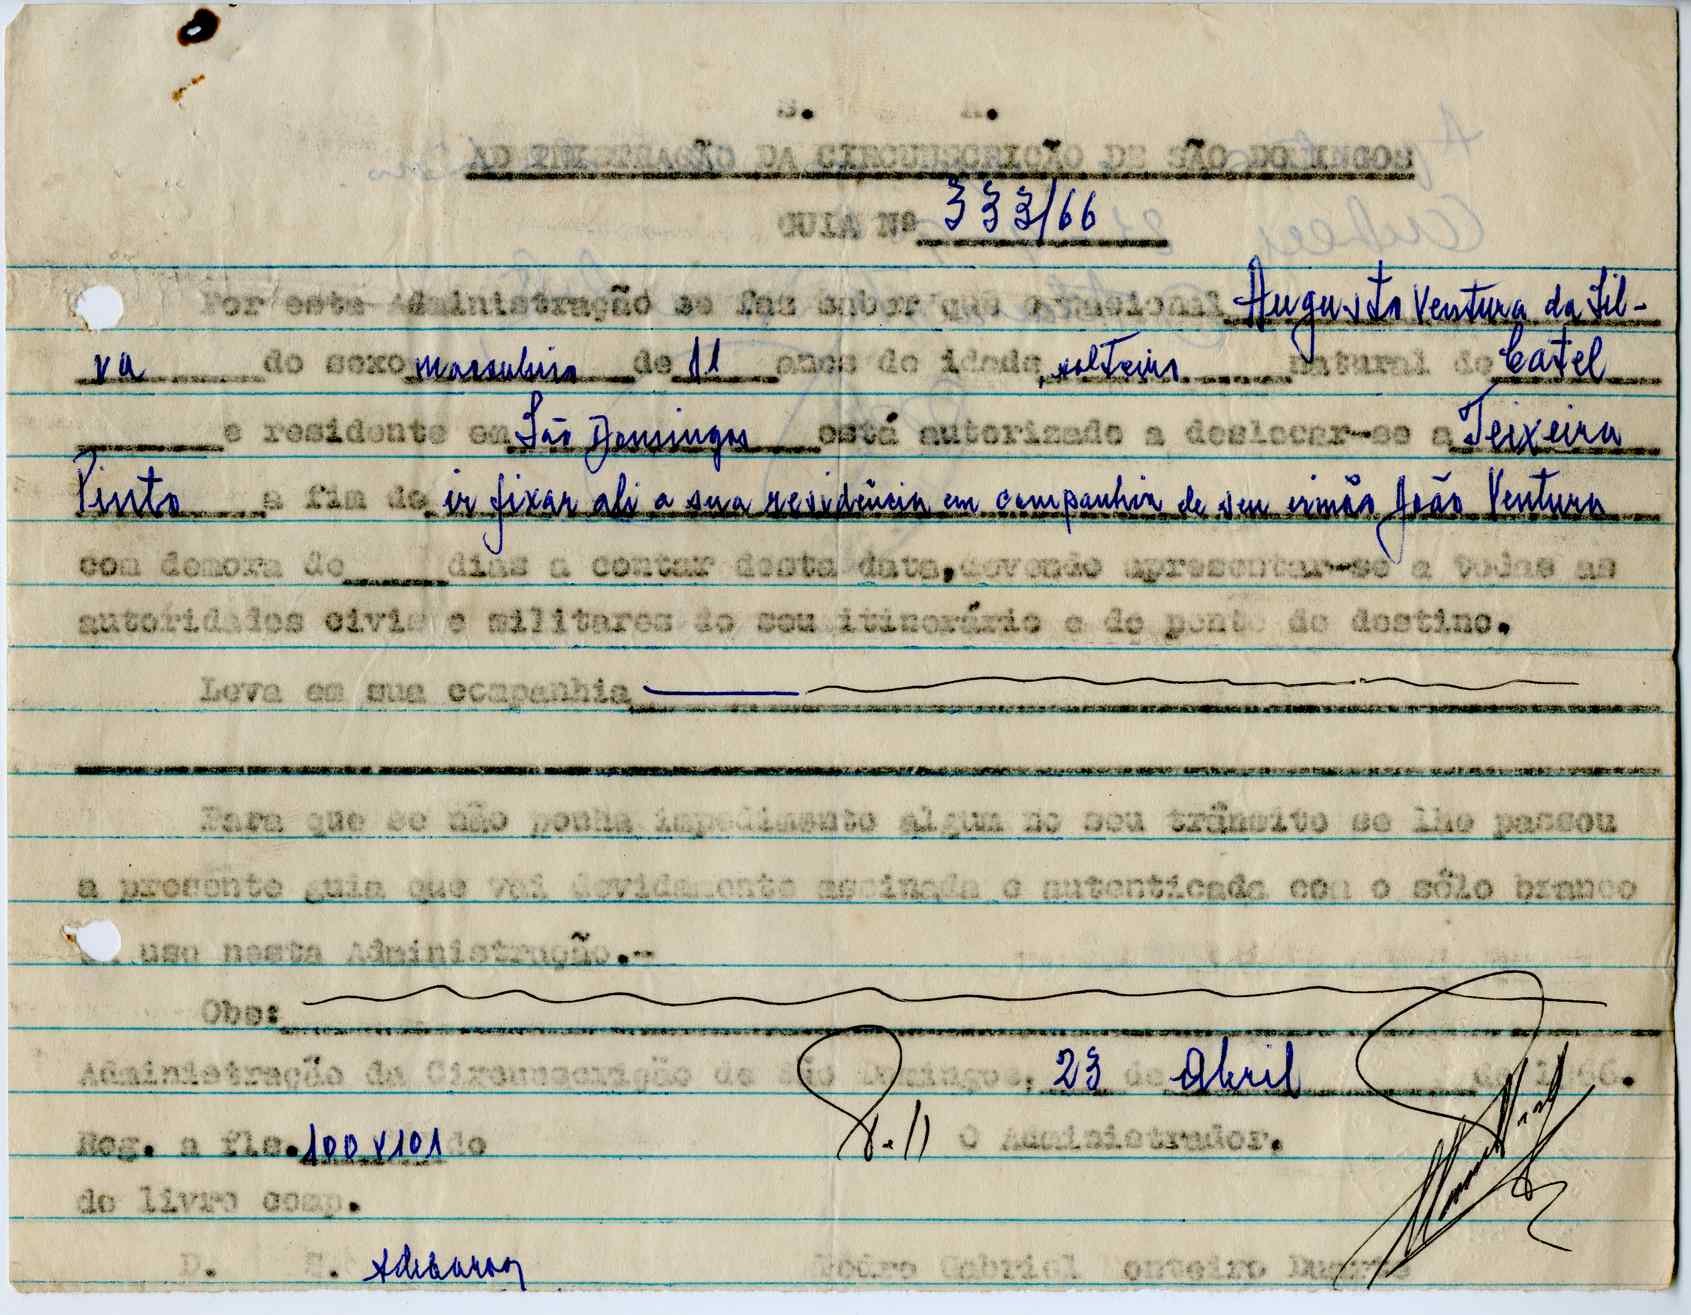 S. R.
ADMINISTRAÇÃO DA CIRCUNSCRIÇÃO DE SÃO DOMINGOS
GUIA Nº 333/66
Por esta Administração se faz saber que o nacional Augusto Ventura da Sil-
va do sexo masculino de 11 anos de idade, solteiro natural de Catel
e residente em São Domingos está autorizado a deslocar-se a Teixeira
Pinto a fim de ir fixar ali a sua residência em companhia de seu irmão João Ventura
com demora de dias a contar desta data, devendo apresentar-se a todas as
autoridades civis e militares do seu itinerário e do ponto de destino.
Leva em sua companhia
Para que se não ponha impedimento algum no seu trânsito se lhe passou
a presente guia que vai devidamente assinada e autenticada com o sêlo branco
uso nesta Administração.-
Obs:
Administração da Circunscrição de São Domingos, 23 de Abril de 1966.
Reg. a fls. 100 v 101 do O Administrador.
do livro comp.
D. E. Pedro Gabriel Monteiro Duarte